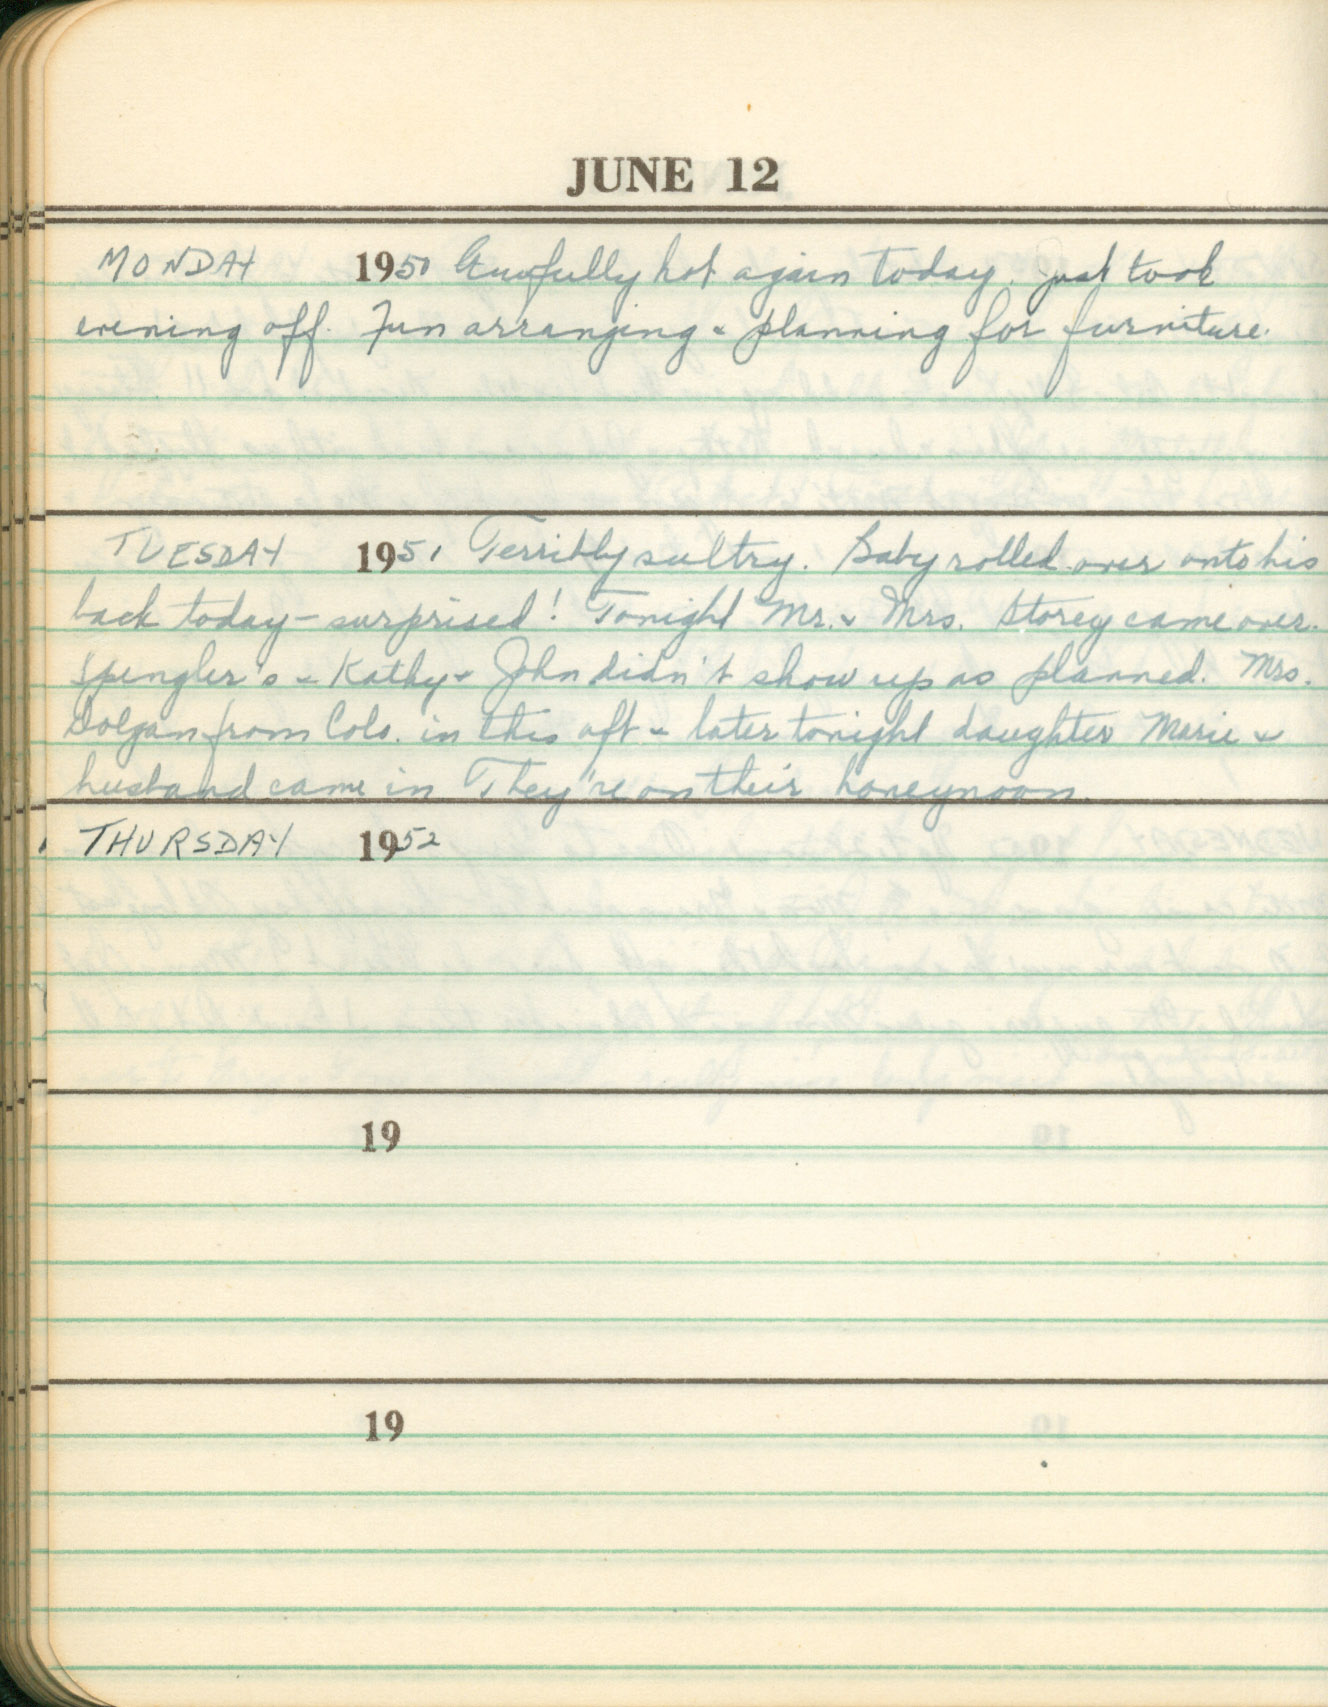 JUNE 12
MONDAY 1950 Awfully hot again today. just took
evening off. Fun arranging & planning for furniture.
TUESDAY 1951 Terribly sultry. Baby rolled over onto his
back today - surprised! Tonight Mr. & Mrs. Storey came over.
Spengler's & Kathy & John didn't show up as planned. Mrs.
Dolgan from Colo. in this aft & later tonight daughter Marie &
husband came in They're on their honeymoon.
THURSDAY 1952
19
19